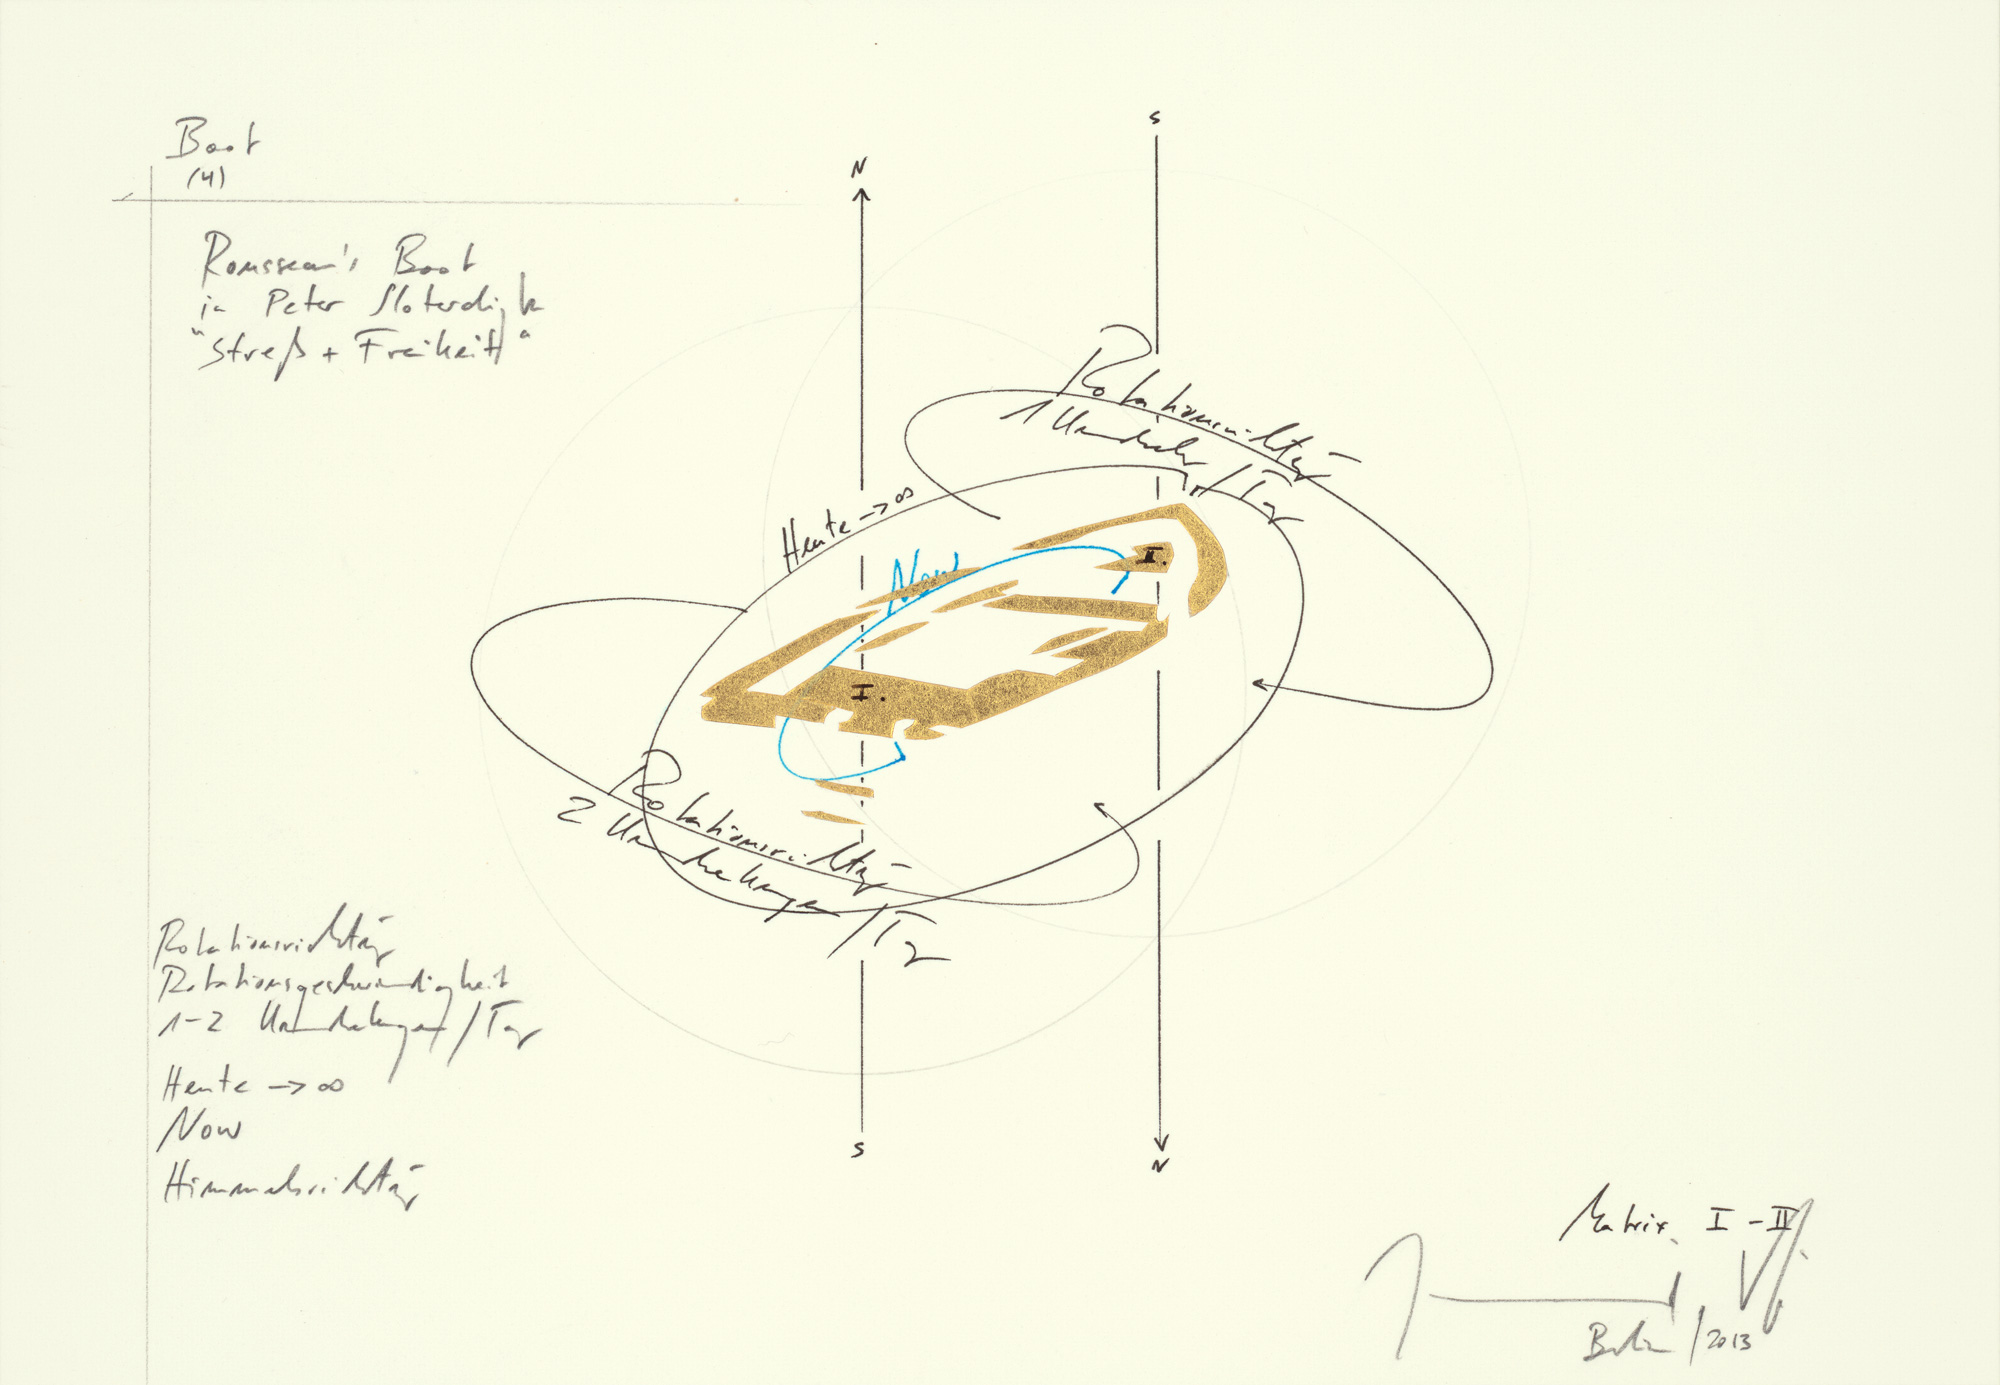 Boot
(4)
Rousseau's Boot
in Peter Sloterdijk
"Streß + Freiheit"
N
S
Rotationsrichtung
1 Umdrehung/Tag
Heute → ∞
Now
II.
I.
Rotationsrichtung
2 Umdrehungen/Tag
Rotationsrichtung
Rotationsgeschwindigkeit
1-2 Umdrehungen/Tag
Heute → ∞
Now
Himmelsrichtung
S
N
Matrix I - II
Berlin/2013